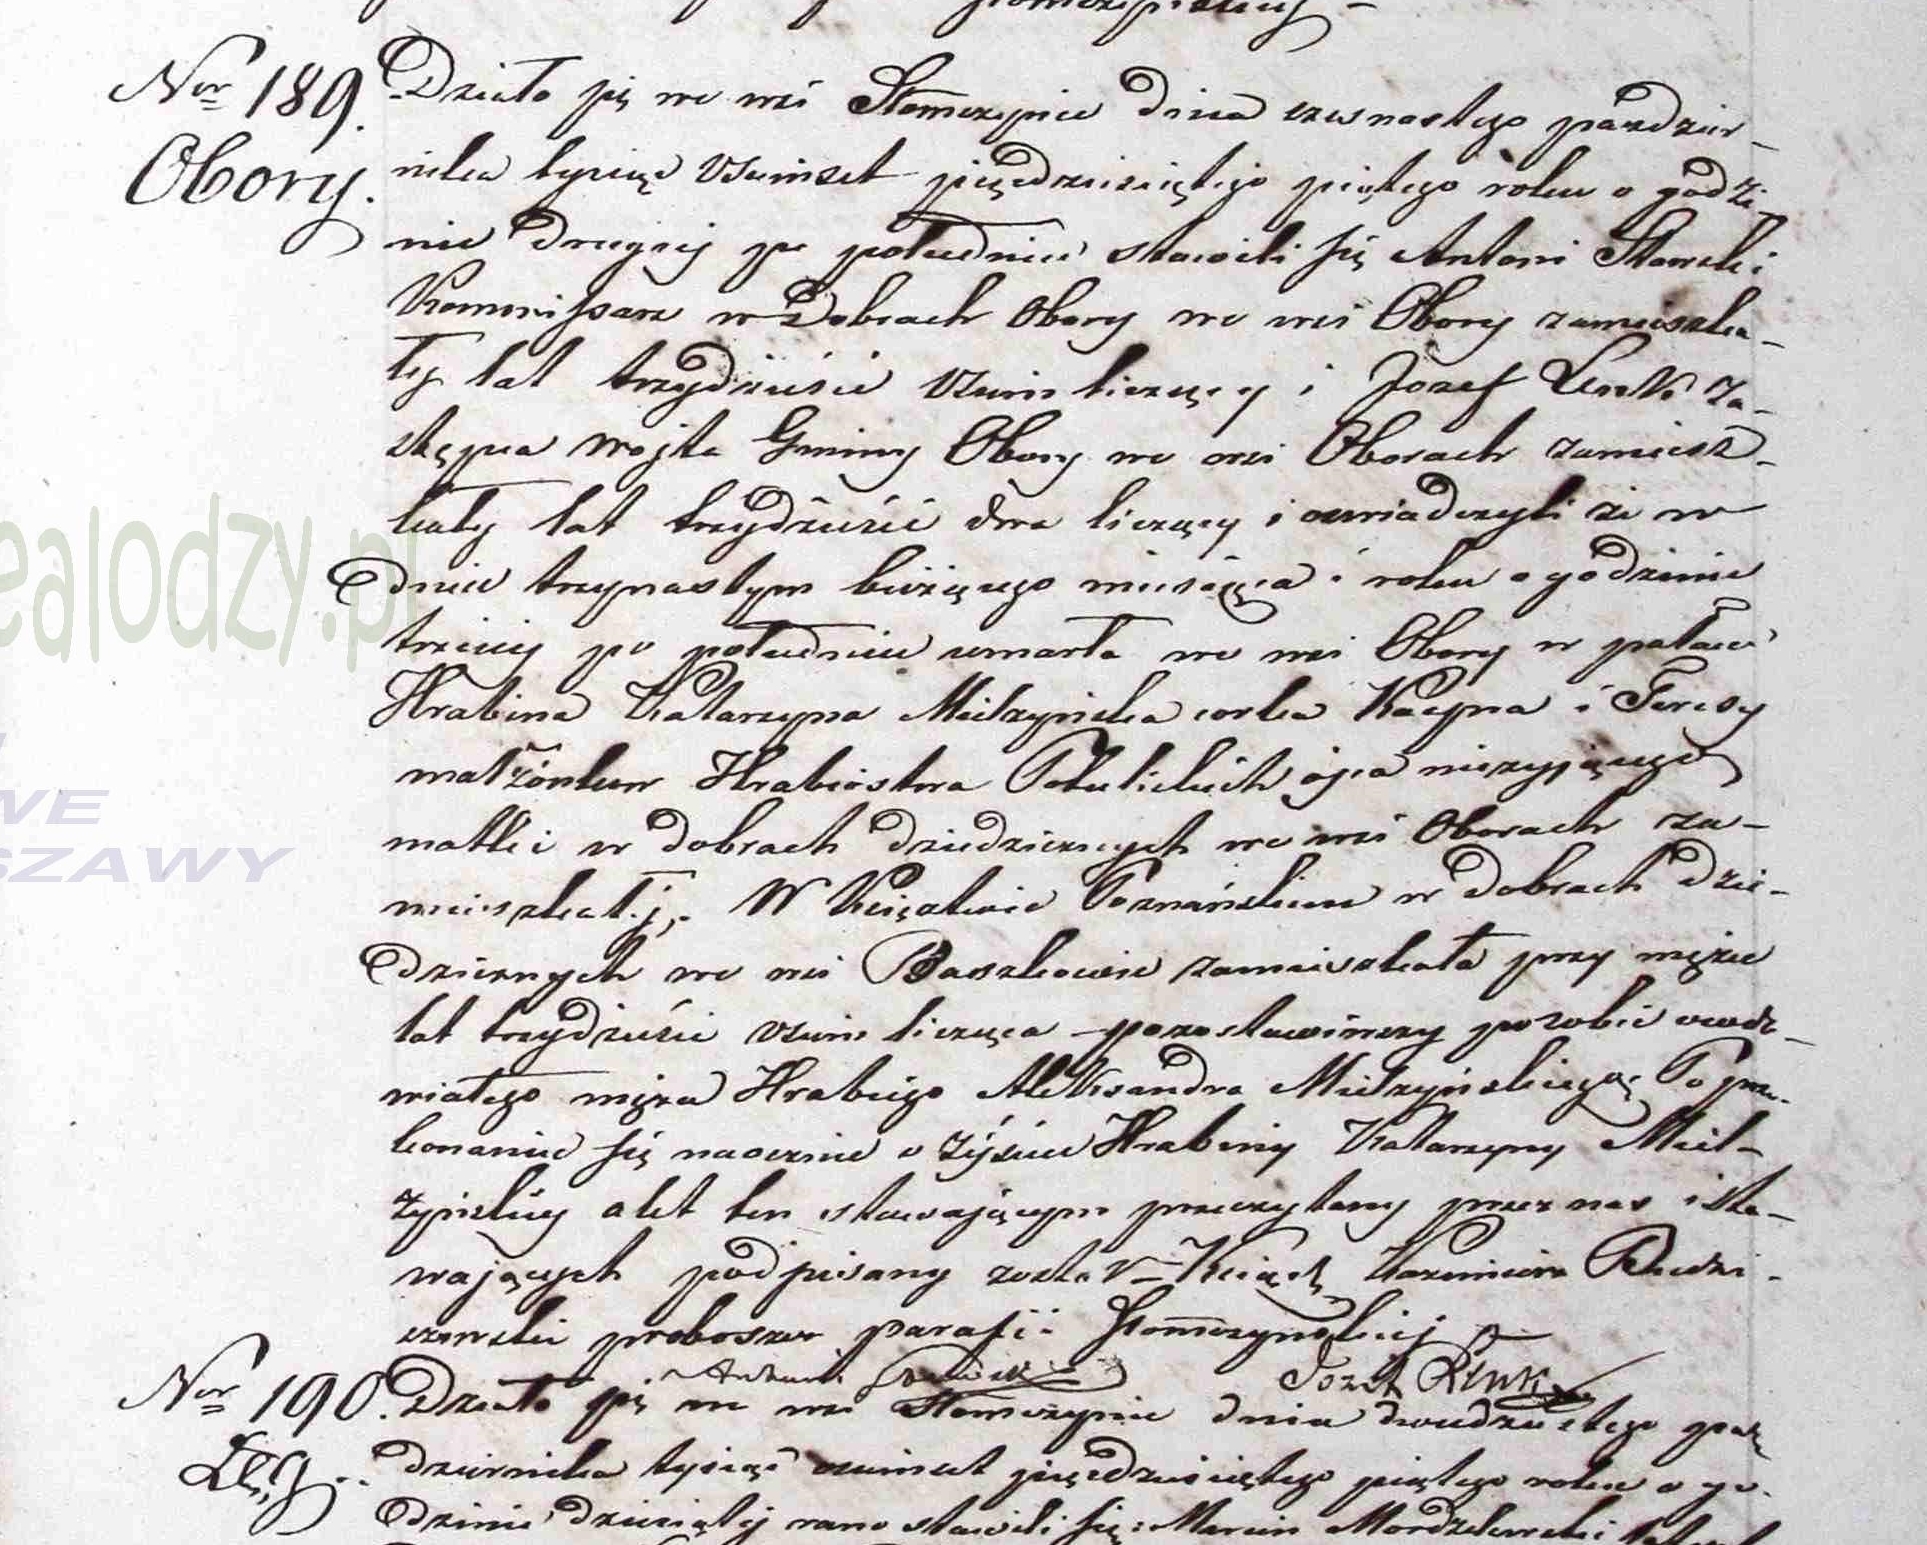 Nr 189.
Obory.
Działo się we wsi Słomczynie dnia czwnastego paździer-
nika tysiąc ośmset pięćdziesiątego piątego roku o godzi-
nie drugiej po południu stawili się Antoni Sławski
Kommissarz w Dobrach Obory we wsi Obory zamieszka-
ły lat trzydzieści ośm liczący i Jozef Za-
stępca Wojta Gminy Obory we wsi Oborach zamiesz-
kały lat trzydzieści dwa liczący i oswiadczyli że w
dniu trzynastym bieżącego miesiąca i roku o godzinie
trzeciej po południu umarła we wsi Obory w pałacu
Hrabina Katarzyna Mielzyńska corka Kacpra i Teresy
małżonkow Hrabiostwa Potulickich ojca nieżyjącego
matki w dobrach dziedzicznych we wsi Oborach za-
mieszkałej. W Księztwie Poznańskim w dobrach dzie-
dzicznych we wsi Baszkowie zamieszkała przy mężu
lat trzydzieści ośm licząca pozostawiwszy po sobie owdo-
wiałego męża Hrabiego Aleksandra Mielzyńskiego; Po prze-
konaniu się naocznie o zejściu Hrabiny Katarzyny Miel-
zyńskiej akt ten stawającym przeczytany przez nas i sta-
wających podpisany został Ksiądz Kazimierz Rudzi-
szewski proboszcz parafii Słomczynskiej
Antoni Sławski Jozef Rink
Nr 190.
Łęg.
Działo się we wsi Słomczynie dnia dwudziestego paź
dziernika tysiąc ośmset pięćdziesiątego piątego roku o go-
dzinie dziesiątej rano stawili się: Marcin Mordzelewski
ealodzy.pl
WE
SZAWY